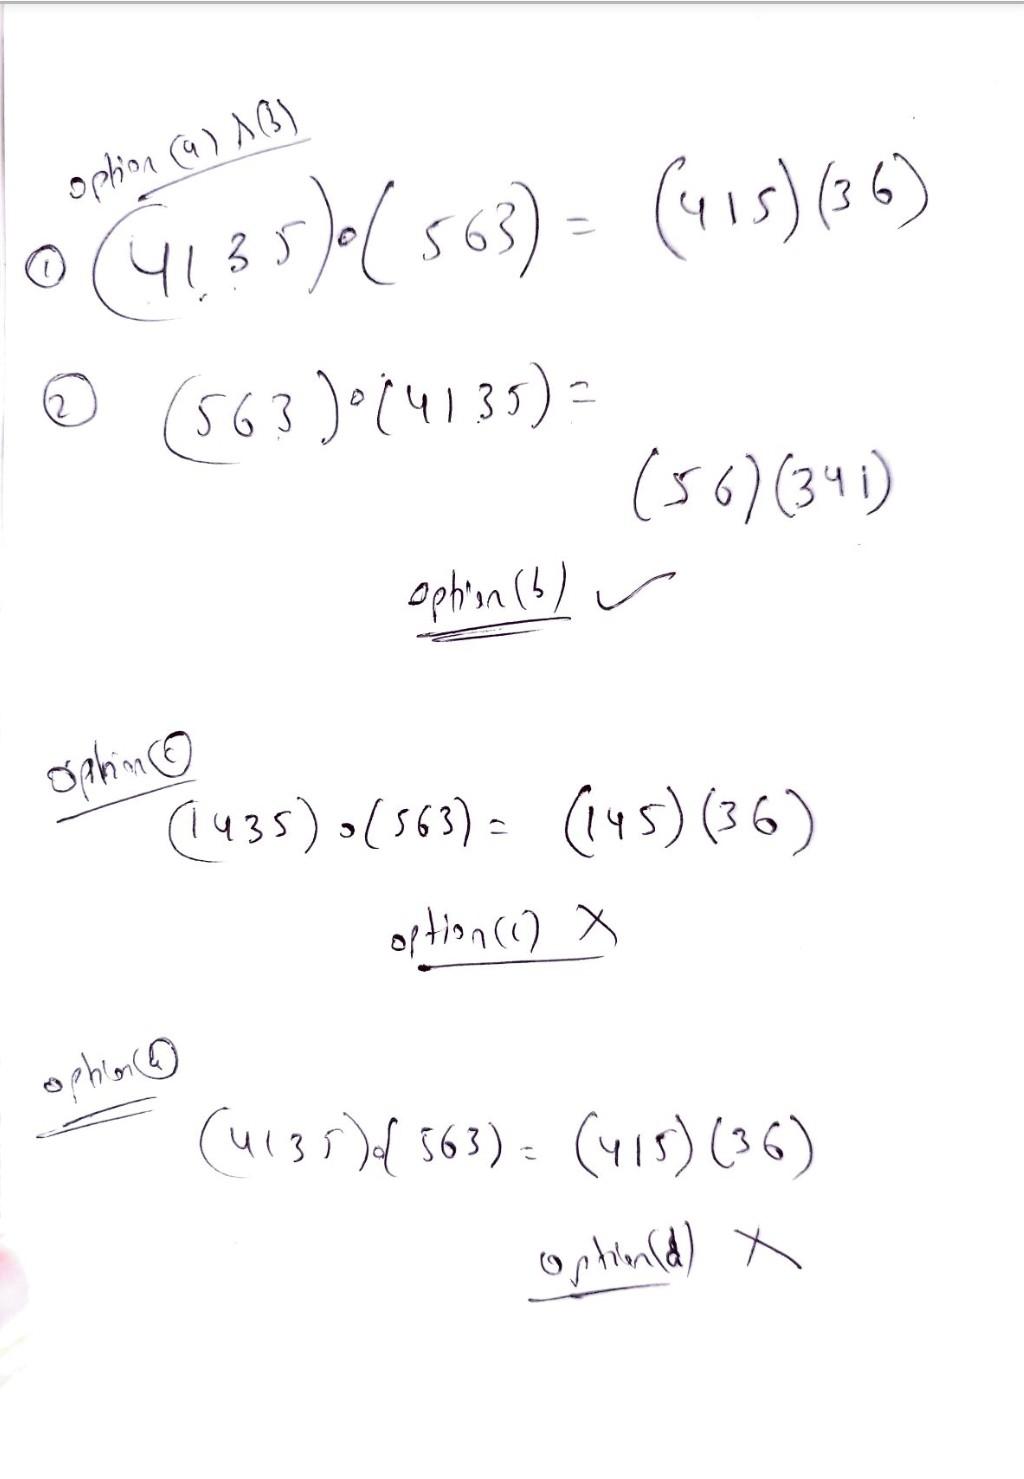 option (a) ∧ (B)
① (4135)∘(563) = (415)(36)
② (563)∘(4135) =
(56)(341)
option (b) ✓
option ⓒ
(1435)∘(563) = (145)(36)
option (c) X
option ⓓ
(4135)∘(563) = (415)(36)
option(d) X